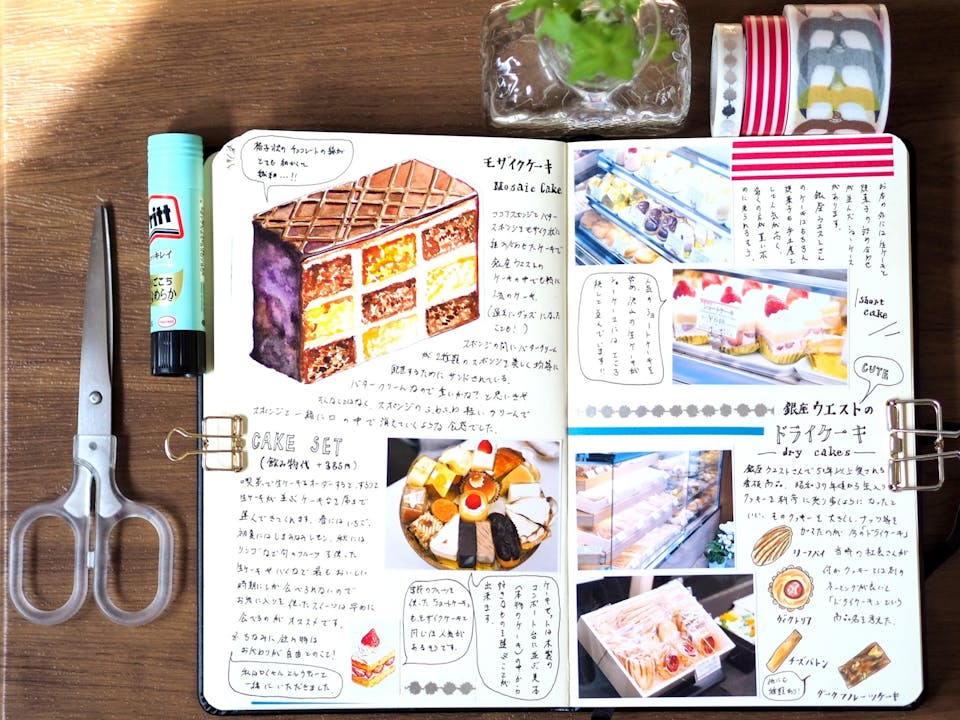 格子状の チョコレートの線が
とても細かくて
モザイクケーキ
Mosaic Cake
ココアスポンジとバター
スポンジをモザイク状に
組み合わせたケーキで
銀座ウエストの
ケーキの中でも特に
人気のケーキ。
スポンジの間にバタークリーム
が2種類のスポンジを美しく
ためにサンドされている。
バタークリームなので重いかな?と思いきや
そんなことはなく、スポンジのふわふわ 軽いクリームで
スポンジと一緒に口の中で消えていくような食感でした。
CAKE SET
(飲み物代 +385円)
喫茶で生ケーキをオーダーすると、
生ケーキが並ぶケーキ台を席まで
運んできてくれます。春にはいちご、
初夏にはしまなみのレモン、秋には
リンゴなど旬のフルーツを使った
生ケーキやパイなど最もおいしい
時期にしか食べられないので
お気に入りを使ったスイーツは早めに
食べるのがオススメです。
※ちなみに飲み物は
おかわりが自由とのこと!
一緒にいただきました
使ったショートケーキ
もモザイクケーキと
同じく人気が
あるそうです。
ケーキセットは木製の
コンポート台に並ぶ見本
(本物のケーキ)の中から
好きなものを選ぶことが
出来ます。
お店の外には生ケーキと
焼菓子の詰め合わせ
が並んだショーケース
があります。
銀座ウエストさん
のケーキはもちろん
焼菓子も手土産と
して人気が高く、
多くの方が買い求
めに来られるそう。
人気のショートケーキを
始め沢山の生ケーキが
ショーケースには ところ
狭しと並んでいます!!
short
cake
CUTE
銀座ウエストの
ドライケーキ
dry cakes
銀座ウエストさんで50年以上愛される
看板商品。昭和37年頃から
クッキーを
いい、そのクッキーを大きくし、ナッツ等を
かえたのが今の「ドライケーキ」
リーフパイ
当時の社長さんが
何かクッキーとは別の
ネーミングが欲しいと
「ドライケーキ」という
商品名を考えた。
ヴィクトリア
チーズバトン
他にも
種類あり!
ダークフルーツケーキ
Pritt